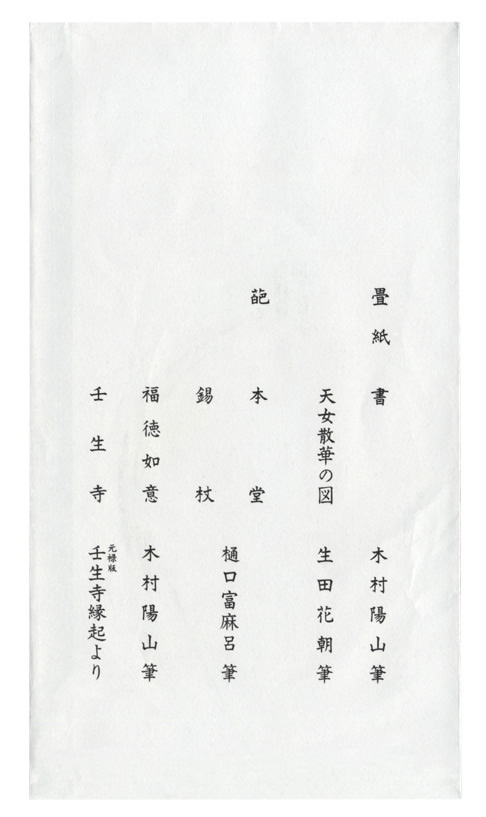 畳紙 書 木村陽山筆
天女散華の図 生田花朝筆
葩 本堂
樋口富麻呂筆
錫杖
福徳如意 木村陽山筆
元禄版
壬生寺 壬生寺縁起より